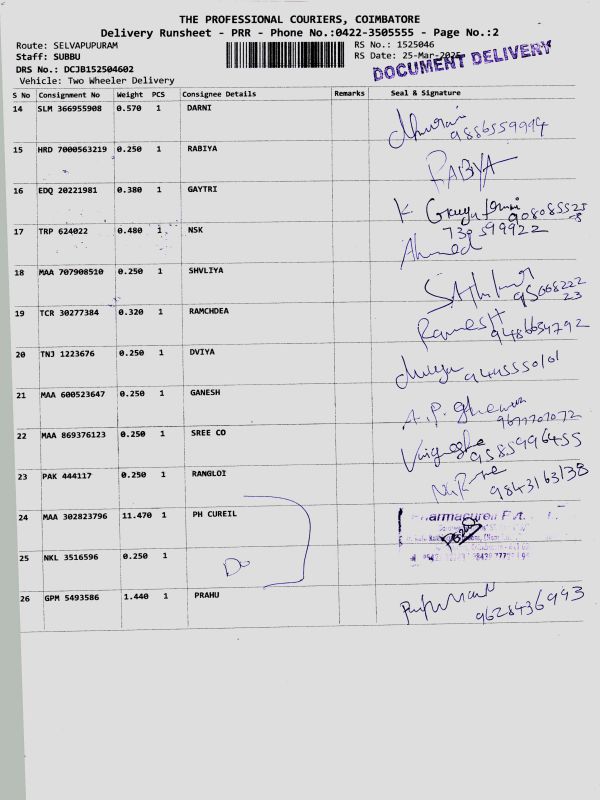 THE PROFESSIONAL COURIERS, COIMBATORE
Delivery Runsheet - PRR - Phone No.:0422-3505555 - Page No.:2
Route: SELVAPUPURAM
RS No.: 1525046
Staff: SUBBU
RS Date: 25-Mar-2025
DRS No.: DCJB152504602
DOCUMENT DELIVERY
Vehicle: Two Wheeler Delivery
S No Consignment No Weight PCS Consignee Details Remarks Seal & Signature
14 SLM 366955908 0.570 1 DARNI
9886559994
15 HRD 7000563219 0.250 1 RABIYA RABIYA
16 EDQ 20221981 0.380 1 GAYTRI K
17 TRP 624022 0.480 1 NSK Ahmed
18 MAA 707908510 0.250 1 SHVLIYA
19 TCR 30277384 0.320 1 RAMCHDEA Ramesh
9486634792
20 TNJ 1223676 0.250 1 DVIYA
9445550101
21 MAA 600523647 0.250 1 GANESH A.P.
9677707072
22 MAA 869376123 0.250 1 SREE CO
9585996455
23 PAK 444117 0.250 1 RANGLOI
9843163138
24 MAA 302823796 11.470 1 PH CUREIL
25 NKL 3516596 0.250 1 Do
26 GPM 5493586 1.440 1 PRAHU
9628436943